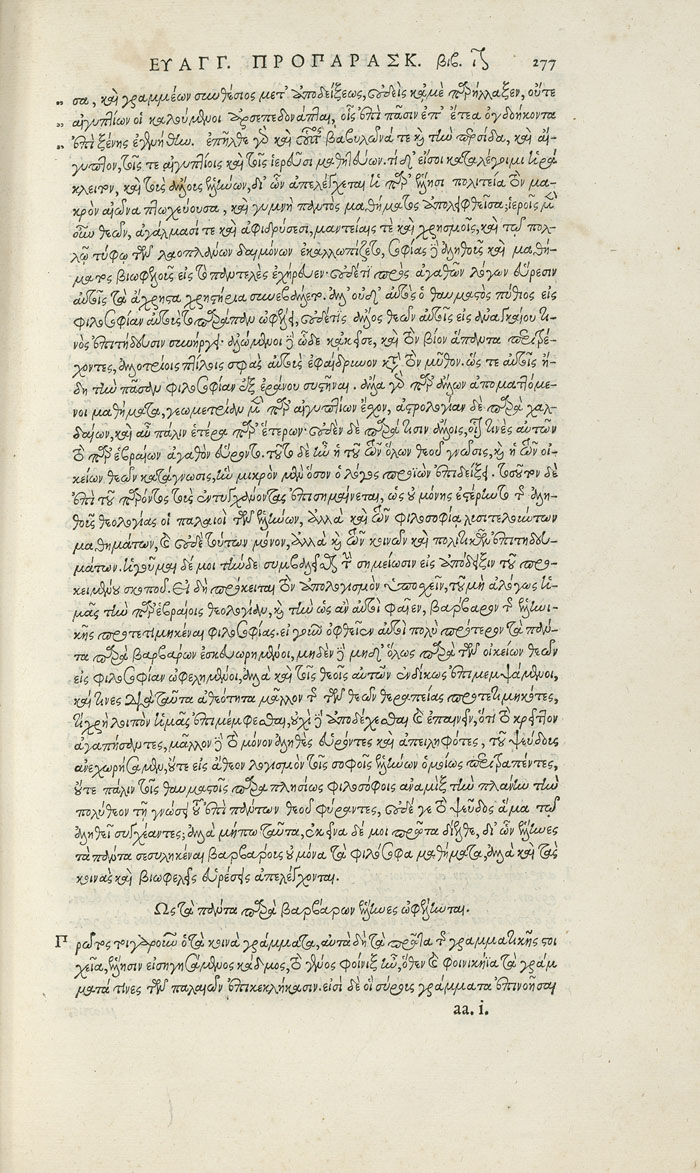 ΕΥΑΓΓ. ΠΡΟΠΑΡΑΣΚ. βιβ. 277
σα, καὶ γραμμέων συνθέσιος μετ' ἀποδείξεως, οὐδείς κα με παρήλλαξεν, οὔτε
αἰγυπτίων οἱ καλούμενοι ἀρσεπεδονάπται, οἷς ἐπὶ πᾶσιν ἐπ' ἔτεα ὀγδοήκοντα
ἐπὶ ξένης ἐγενήθην. ἐπῆλθε γὰρ καὶ οὗτος βαβυλῶνά τε καὶ τὴν περσίδα, καὶ αἴ-
γυπτον, τοῖς τε αἰγυπτίοις καὶ τοῖς ἱερεῦσι μαθητεύων. τί δ' εἴ σοι καταλέγοιμι ἡρά
κλειτον, καὶ τοὺς ἄλλους ἕλληνων, δι' ὧν ἀπελέγχεται ἡ παρ' ἕλλησι πολιτεία τὸν μα-
κρὸν αἰῶνα πτωχεύουσα, καὶ γυμνὴ παντὸς μαθήματος ἀπολειφθεῖσα; ἱεροῖς μὲν
οὖν θεῶν, ἀγάλμασί τε καὶ ἀφιδρύσεσι, μαντείαις τέ καὶ χρησμοῖς, καὶ τῷ πολ-
λῷ τύφῳ τῶν λαοπλάνων δαιμόνων ἐκαλλωπίζετο, σοφίας δ' ἀληθοῦς καὶ μαθή-
ματος βιωφελοῦς εἰς τὸ παντελὲς ἐχήρευεν. οὐδέ τι πρὸς ἀγαθῶν λόγων εὕρεσιν
αὐτοῖς τὰ ἄχρηστα χρηστήρια συνεβάλλετο. ἀλλ' οὐδ' αὐτὸς ὁ θαυμαστὸς πύθιος εἰς
φιλοσοφίαν αὐτοὺς τὸ παράπαν ὠφέλει, οὐδέ τις ἄλλος θεῶν αὐτοῖς εἰς ἀναγκαίου τι-
νὸς ἐπιτήδευσιν συνήργει. ἀλώμενοι δ' ὧδε κἀκεῖσε, καὶ τὸν βίον ἅπαντα περιτρέ-
χοντες, ἀλλοτρίοις πτίλοις σφᾶς αὐτοὺς ἐφαίδρυνον κατὰ τὸν μῦθον. ὥς τε αὐτοῖς ἤ-
δη τὴν πᾶσαν φιλοσοφίαν ἐξ ἐράνου συστῆναι. ἄλλα γὰρ παρ' ἄλλων ἀποματτόμε-
νοι μαθήματα, γεωμετρίαν μὲν παρ' αἰγυπτίων ἔχον, ἀστρολογίαν δὲ παρὰ χαλ-
δαίων, καὶ αὖ πάλιν ἕτερα παρ' ἑτέρων· οὐδὲν δὲ παρά τισιν ἄλλοις, οἷόν τινὲς αὐτῶν
τὸ παρ' ἑβραίων ἀγαθὸν εὕροντο. τοῦτο δὲ ἦν ἡ τοῦ τῶν ὅλων θεοῦ γνῶσις, καὶ ἡ τῶν οἰ-
κείων θεῶν κατάγνωσις, ἣν μικρὸν μὲν ὅσον ὁ λόγος προϊὼν ἐπιδείξει. τοσοῦτον δὲ
ἐπὶ τοῦ παρόντος τοῖς ἐντυγχάνουσιν ἐπισημαίνεται, ὡς οὐ μόνης ἐστέρηντο τῆς ἀλη-
θοῦς θεολογίας οἱ παλαιοὶ τῶν ἑλλήνων, ἀλλὰ καὶ τῶν φιλοσοφίᾳ λυσιτελούντων
μαθημάτων, καὶ οὐδὲ τούτων μόνον, ἀλλὰ καὶ τῶν κοινῶν καὶ πολιτικῶν ἐπιτηδευ-
μάτων. ἡγοῦμαι δέ μοι τήνδε συμβαλεῖσθαι τὴν σημείωσιν εἰς ἀπόδειξιν τοῦ προ-
κειμένου σκοποῦ. ἐπεὶ δὴ πρόκειται τὸν ἀπολογισμὸν ὑποσχεῖν, τοῦ μὴ ἀλόγως ἡ-
μᾶς τὴν παρ' ἑβραίοις θεολογίαν, καὶ τὴν ὡς ἂν αὐτοὶ φαῖεν, βάρβαρον τῆς ἑλληνι-
κῆς προτετιμηκέναι φιλοσοφίας. εἰ γοῦν ὀφθεῖεν αὐτοὶ πολὺ πρότερον τὰ πάν-
τα παρὰ βαρβάρων ἐσκευωρημένοι, μηδὲν δὲ μηδ' ὅλως παρὰ τῶν οἰκείων θεῶν
εἰς φιλοσοφίαν ὠφελημένοι, ἀλλὰ καὶ τοῖς θεοῖς αὐτῶν ἐνδίκως ἐπιμεμψάμενοι,
καί τινες διὰ ταῦτα ἀθεότητα μᾶλλον τῆς τῶν θεῶν θεραπείας προτετιμηκότες,
τί χρὴ λοιπὸν ἡμᾶς ἐπιμέμφεσθαι, οὐχὶ δὲ ἀποδέχεσθαι καὶ ἐπαινεῖν, ὅτι τὸ κρεῖττον
ἀγαπήσαντες, μᾶλλον δὲ τὸ μόνον ἀληθὲς εὑρόντες καὶ ἀπειληφότες, τοῦ ψεύδους
ἀνεχωρήσαμεν, οὔτε εἰς ἄθεον λογισμὸν τοῖς σοφοῖς ἑλλήνων ὁμοίως περιτραπέντες,
οὔτε πάλιν τοῖς θαυμαστοῖς παραπλησίως φιλοσόφοις ἀναμὶξ τὴν πλάνην τὴν
πολύθεον τῇ γνώσει τοῦ ἐπὶ πάντων θεοῦ φύραντες, οὐδέ γε τὸ ψεῦδος ἅμα τῷ
ἀληθεῖ συγχέαντες; ἀλλὰ μήπω ταῦτα, ἐκεῖνα δέ μοι πρῶτα δίελθε, δι' ὧν ἕλληνες
τὰ πάντα σεσυληκέναι βαρβάρους οὐ μόνα τὰ φιλόσοφα μαθήματα, ἀλλὰ καὶ τὰς
κοινὰς καὶ βιωφελεῖς εὑρέσεις ἀπελέγχονται.
Ὡς τὰ πάντα παρὰ βαρβάρων ἕλληνες ὠφέληνται.
Πρῶτος τοιγαροῦν ὁ τὰ κοινὰ γράμματα, αὐτὰ δὴ τὰ πρῶτα τῆς γραμματικῆς στοι
χεῖα, ἕλλησιν εἰσηγησάμενος κάδμος, τὸ γένος φοῖνιξ ἦν, ὅθεν καὶ φοινικήϊα τὰ γράμ
ματά τινες τῶν παλαιῶν ἐπικεκλήκασιν. εἰσὶ δὲ οἳ σύρους γράμματα ἐπινοῆσαι
aa. i.